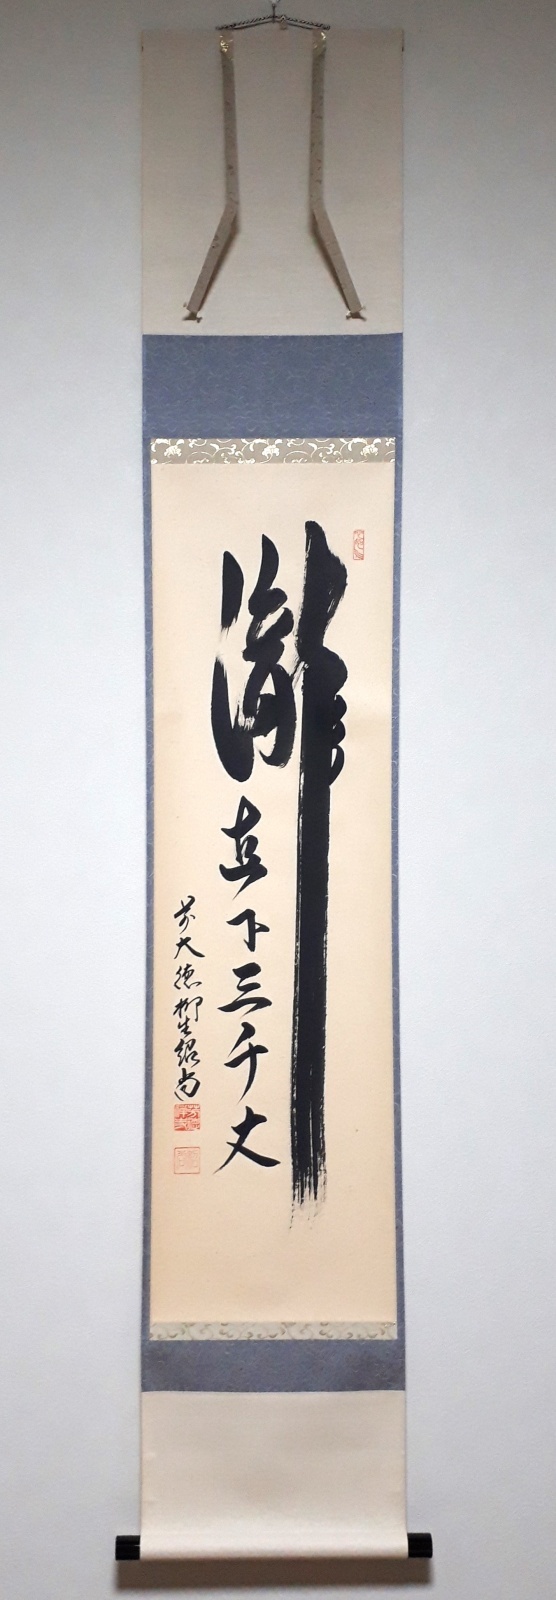 瀧
直下三千丈
前大徳柳生紹尚